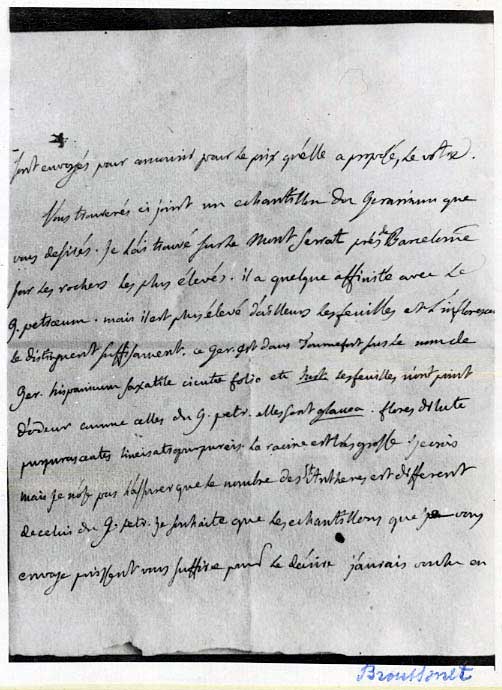 sont envoyés pour concourir pour le prix qu'elle a proposé, le votre.
Vous trouverés ci joint un echantillon du Geranium que
vous desirés. Je l'ais trouvé sur le Mont Serrat près de Barcelonne
sur les rochers les plus élevés. il a quelque affinité avec le
G. petraeum. mais il est plus élevé d'ailleurs les feuilles et l'inflorescen
le distinguent suffisament. ce Ger. est dans Tournefort sus le nom de
Ger. hispanicum saxatile cicutae folio etc Inst. les feuilles n'ont point
d'odeur comme celles du G. petr. elles sont glauca. flores dilute
purpurascentes lineis atropurpureis. la racine est très grosse. Je crois
mais je n'ose pas l'assurer que le nombre des Antheres est different
de celui du G. petr. je souhaite que les echantillons que je vous
envoye puissent vous suffire pour le décrire j'aurais voulu en
Broussonet